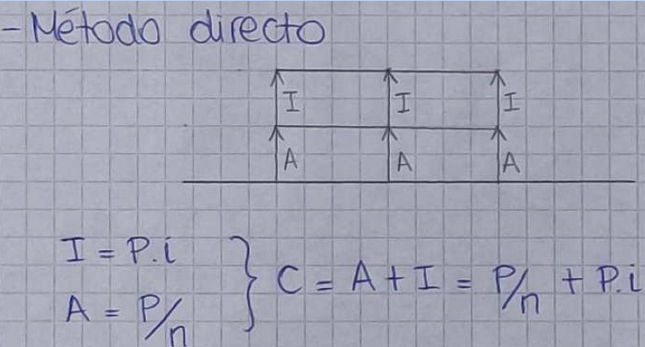 - Método directo
I I I
A A A
I = P.i
A = P/n
} C = A + I = P/n + P.i